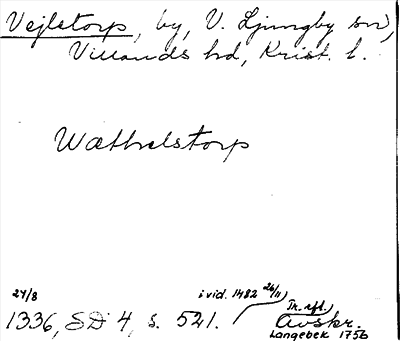 Vejletorp, by, V. Ljungby sn,
Villands hd, Krist. l.
Wæthelstorp
27/8 i vid. 1482 26/11
1336, SD 4, s. 521. Tr. eft. Avskr.
Langebek 1756